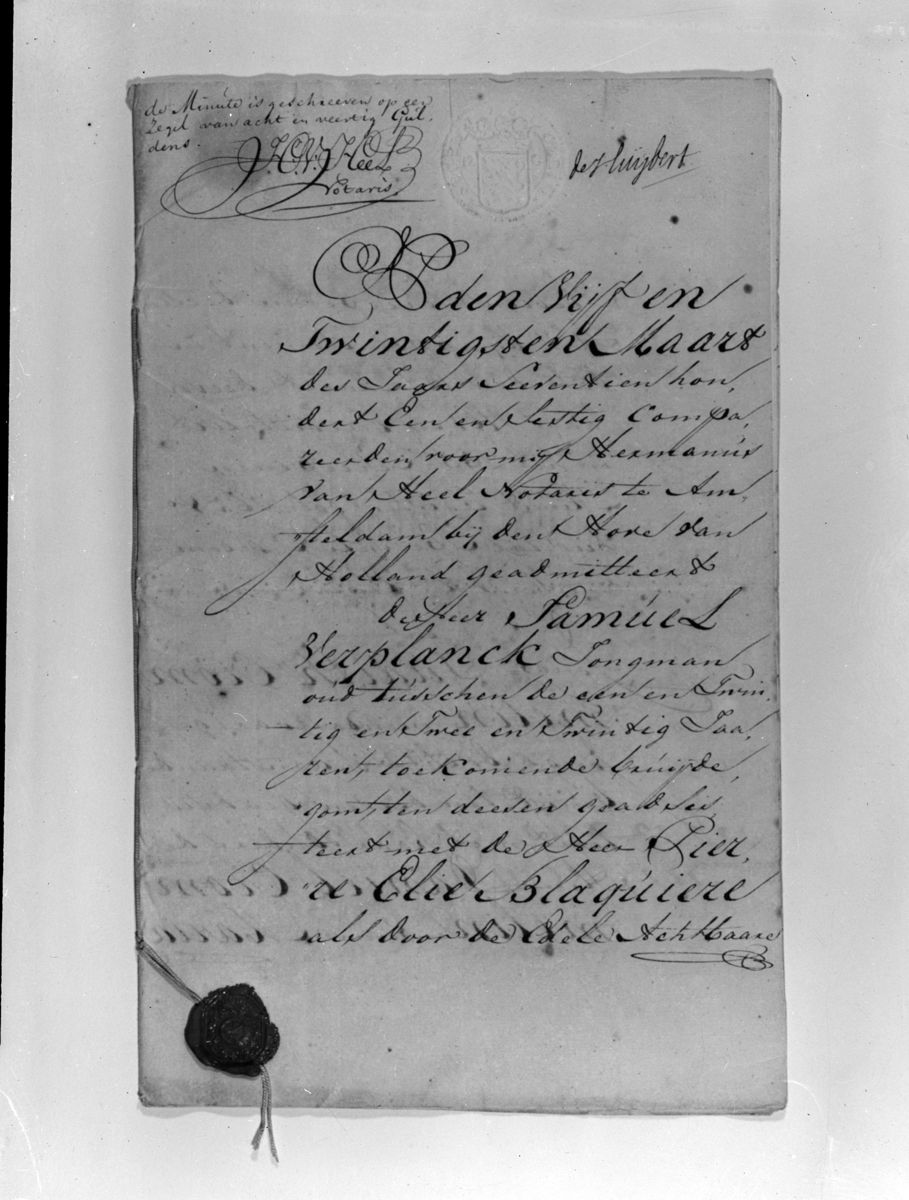 de Minúte is geschreeven op een
Zegel van acht en veertig Gul,
dens.
H.V. Heel
Notaris
de Huijbert
OP den Vijf en
Twintigsten Maart
des Jaars Seeventien hon,
dert Een en Sestig Compa,
reerden voor mij Hermanús
van Heel Notaris te Am,
steldam bij den Hove van
Holland geadmitteert
de Heer Samúel
Verplanck Jongman
oud tússchen de een en Twin,
tig en Twee en Twintig Jaa,
ren, toekomende brúijde,
gom, ten deesen geadsis,
teert met de Heer Pier,
re Elie Blaqúiere
als door de Edele Achtbaare